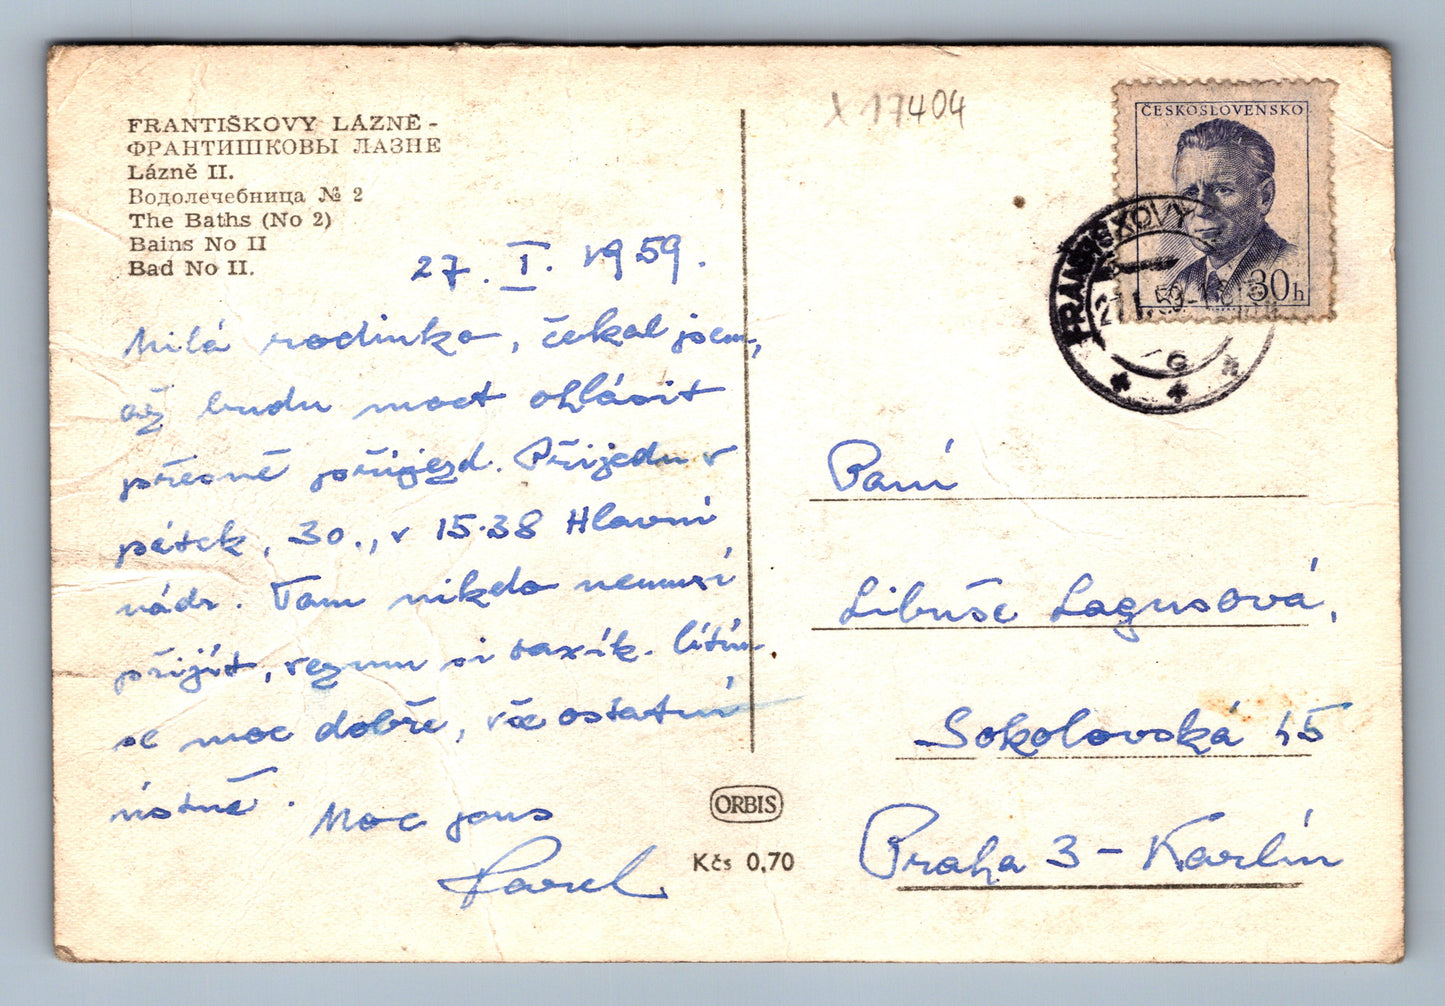 FRANTIŠKOVY LÁZNĚ -
ФРАНТИШКОВЫ ЛАЗНЕ
Lázně II.
Водолечебница № 2
The Baths (No 2)
Bains No II
Bad No II.
27. I. 1959.
Milá rodinko, čekal jsem,
až budu moct ohlásit
přesně příjezd. Přijedu v
pátek, 30., v 15.38 Hlavní
nádr. Tam nikdo nemusí
přijít, vezmu si taxík. 
se moc dobře, vše ostatní
ústně. Moc pous
Pavel
X 17404
ČESKOSLOVENSKO
30h
FRANTIŠKOVY
Paní
Libuše Lagusová,
Sokolovská 45
Praha 3 - Karlín
ORBIS
Kčs 0,70